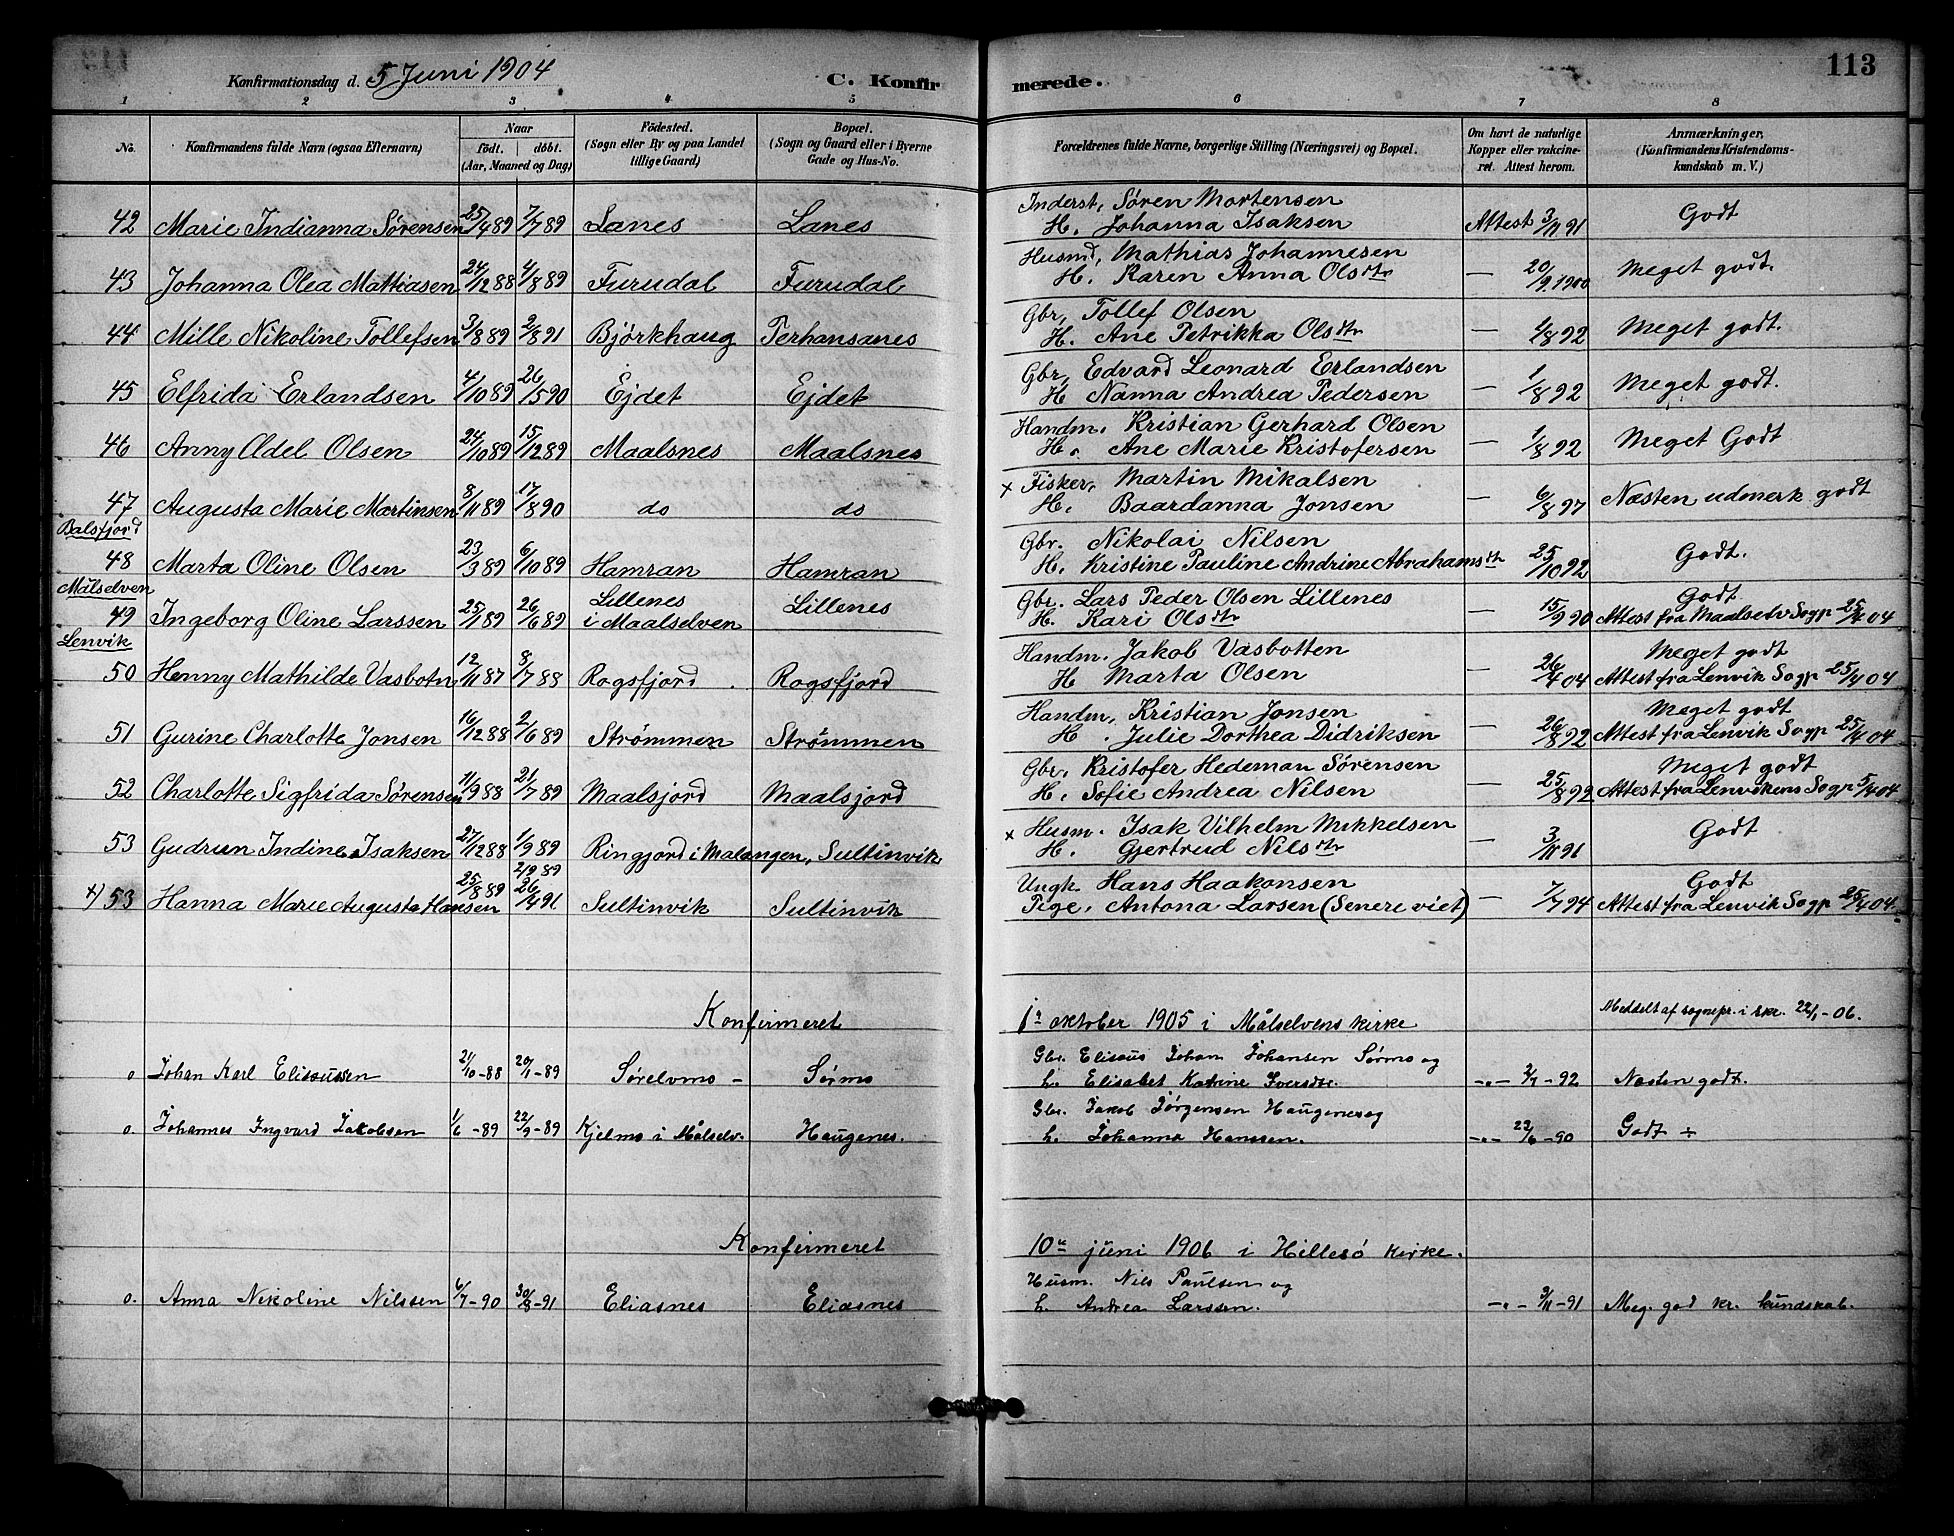 Konfirmationsdag d. 5 Juni 1904 C. Konfirmerede. 113
1 2 3 4 5 6 7 8
No. Konfirmandens fulde Navn (ogsaa Efternavn) Naar født. døbt. (Aar, Maaned og Dag) Födested. (Sogn eller By og paa Landet tillige Gaard) Bopæl. (Sogn og Gaard eller i Byerne Gade og Hus-No. Forældrenes fulde Navne, borgerlige Stilling (Næringsvei) og Bopæl. Om havt de naturlige Kopper eller vakcineret. Attest herom. Anmærkninger, (Konfirmandens Kristendomskundskab m. V.)
Inderst, Søren Mortensen
42 Marie Indianna Sørensen 25/4 89 7/7 89 Lanes Lanes H. Johanna Isaksen Attest 3/11 91 Godt
Husmd, Mathias Johannesen
43 Johanna Olea Mattiasen 24/12 88 4/8 89 Furudal Furudal H. Karen Anna Olsdtr — 20/9 1900 Meget godt.
Gbr, Tollef Olsen
44 Mille Nikoline Tollefsen 3/8 89 2/8 91 Bjørkhaug Perhansanes H. Ane Petrikka Olsdtr — 1/8 92 Meget godt.
Gbr, Edvard Leonard Erlandsen
45 Elfrida Erlandsen 4/10 89 26/5 90 Ejdet Ejdet H Nanna Andrea Pedersen — 1/8 92 Meget godt.
Handm. Kristian Gerhard Olsen
46 Anny Adel Olsen 24/10 89 15/12 89 Maalsnes Maalsnes H. Ane Marie Kristofersen — 1/8 92 Meget Godt
x Fisker, Martin Mikalsen
47 Augusta Marie Martinsen 8/11 89 17/8 90 do do H. Baardanna Jonsen — 6/8 97 Næsten udmerk godt
Balsfjord
Gbr. Nikolai Nilsen
48 Marta Oline Olsen 23/3 89 6/10 89 Hamran Hamran H. Kristine Pauline Andrine Abrahamsdtr 25/10 92 Godt.
Målselven
Gbr. Lars Peder Olsen Lillenes Godt
49 Ingeborg Oline Larssen 25/1 89 26/6 89 Lillenes i Maalselven Lillenes H. Kari Olsdtr — 15/9 90 Attest fra Maalselv Sogp 25/4 04
Lenvik
Handm. Jakob Vasbotten Meget godt
50 Henny Mathilde Vasbotn 12/11 87 8/7 88 Rogsfjord Rogsfjord H Marta Olsen — 26/4 04 Attest fra Lenvik Sogp 25/4 04
Handm, Kristian Jonsen Meget godt
51 Gurine Charlotte Jonsen 16/12 88 2/6 89 Strømmen Strømmen H. Julie Dorthea Didriksen — 26/8 92 Attest fra Lenvik Sogp 25/4 04
Gbr, Kristofer Hedeman Sørensen Meget godt
52 Charlotte Sigfrida Sørensen 11/9 88 21/7 89 Maalsjord Maalsjord H. Sofie Andrea Nilsen — 25/8 92 Attest fra Lenvikens Sogp 5/4 04
x Husm. Isak Vilhelm Mikkelsen
53 Gudrun Indine Isaksen 27/12 88 1/9 89 Ringjord i Malangen, Sultinvik H. Gjertrud Nilsdtr — 3/11 91 Godt
Ungk. Hans Haakonsen Godt
x) 53 Hanna Marie Augusta Hansen 25/8 89 26/4 91 Sultinvik Sultinvik Pige. Antona Larsen (Senere viet) — 7/7 94 Attest fra Lenvik Sogp 25/4 04.
Konfirmeret 1ste oktober 1905 i Målselvens kirke Meddelt af sognepr. i skr. 22/1-06.
Gbr. Elisæus Johan Johansen Sørmo og
o Johan Karl Elisæussen 21/10-88 20/1-89 Sørelvmo - Sørmo h. Elisabet Katrine Iversdtr. -"- 2/7-92 Næsten godt.
Gbr. Jakob Jørgensen Haugenes og
o. Johannes Ingvard Jakobsen 1/6-89 22/9-89 Kjelmo i Målselv. Haugenes. h. Johanna Hanssen. -"- 22/6-90 Godt ÷
Konfirmeret 10de juni 1906 i Hillesø kirke.
Husm. Nils Paulsen og
o. Anna Nikoline Nilssen 6/7-90 30/8-91 Eliasnes Eliasnes h. Andrea Larssen. -"- 3/11-91 Meg. god kr. kundskab.